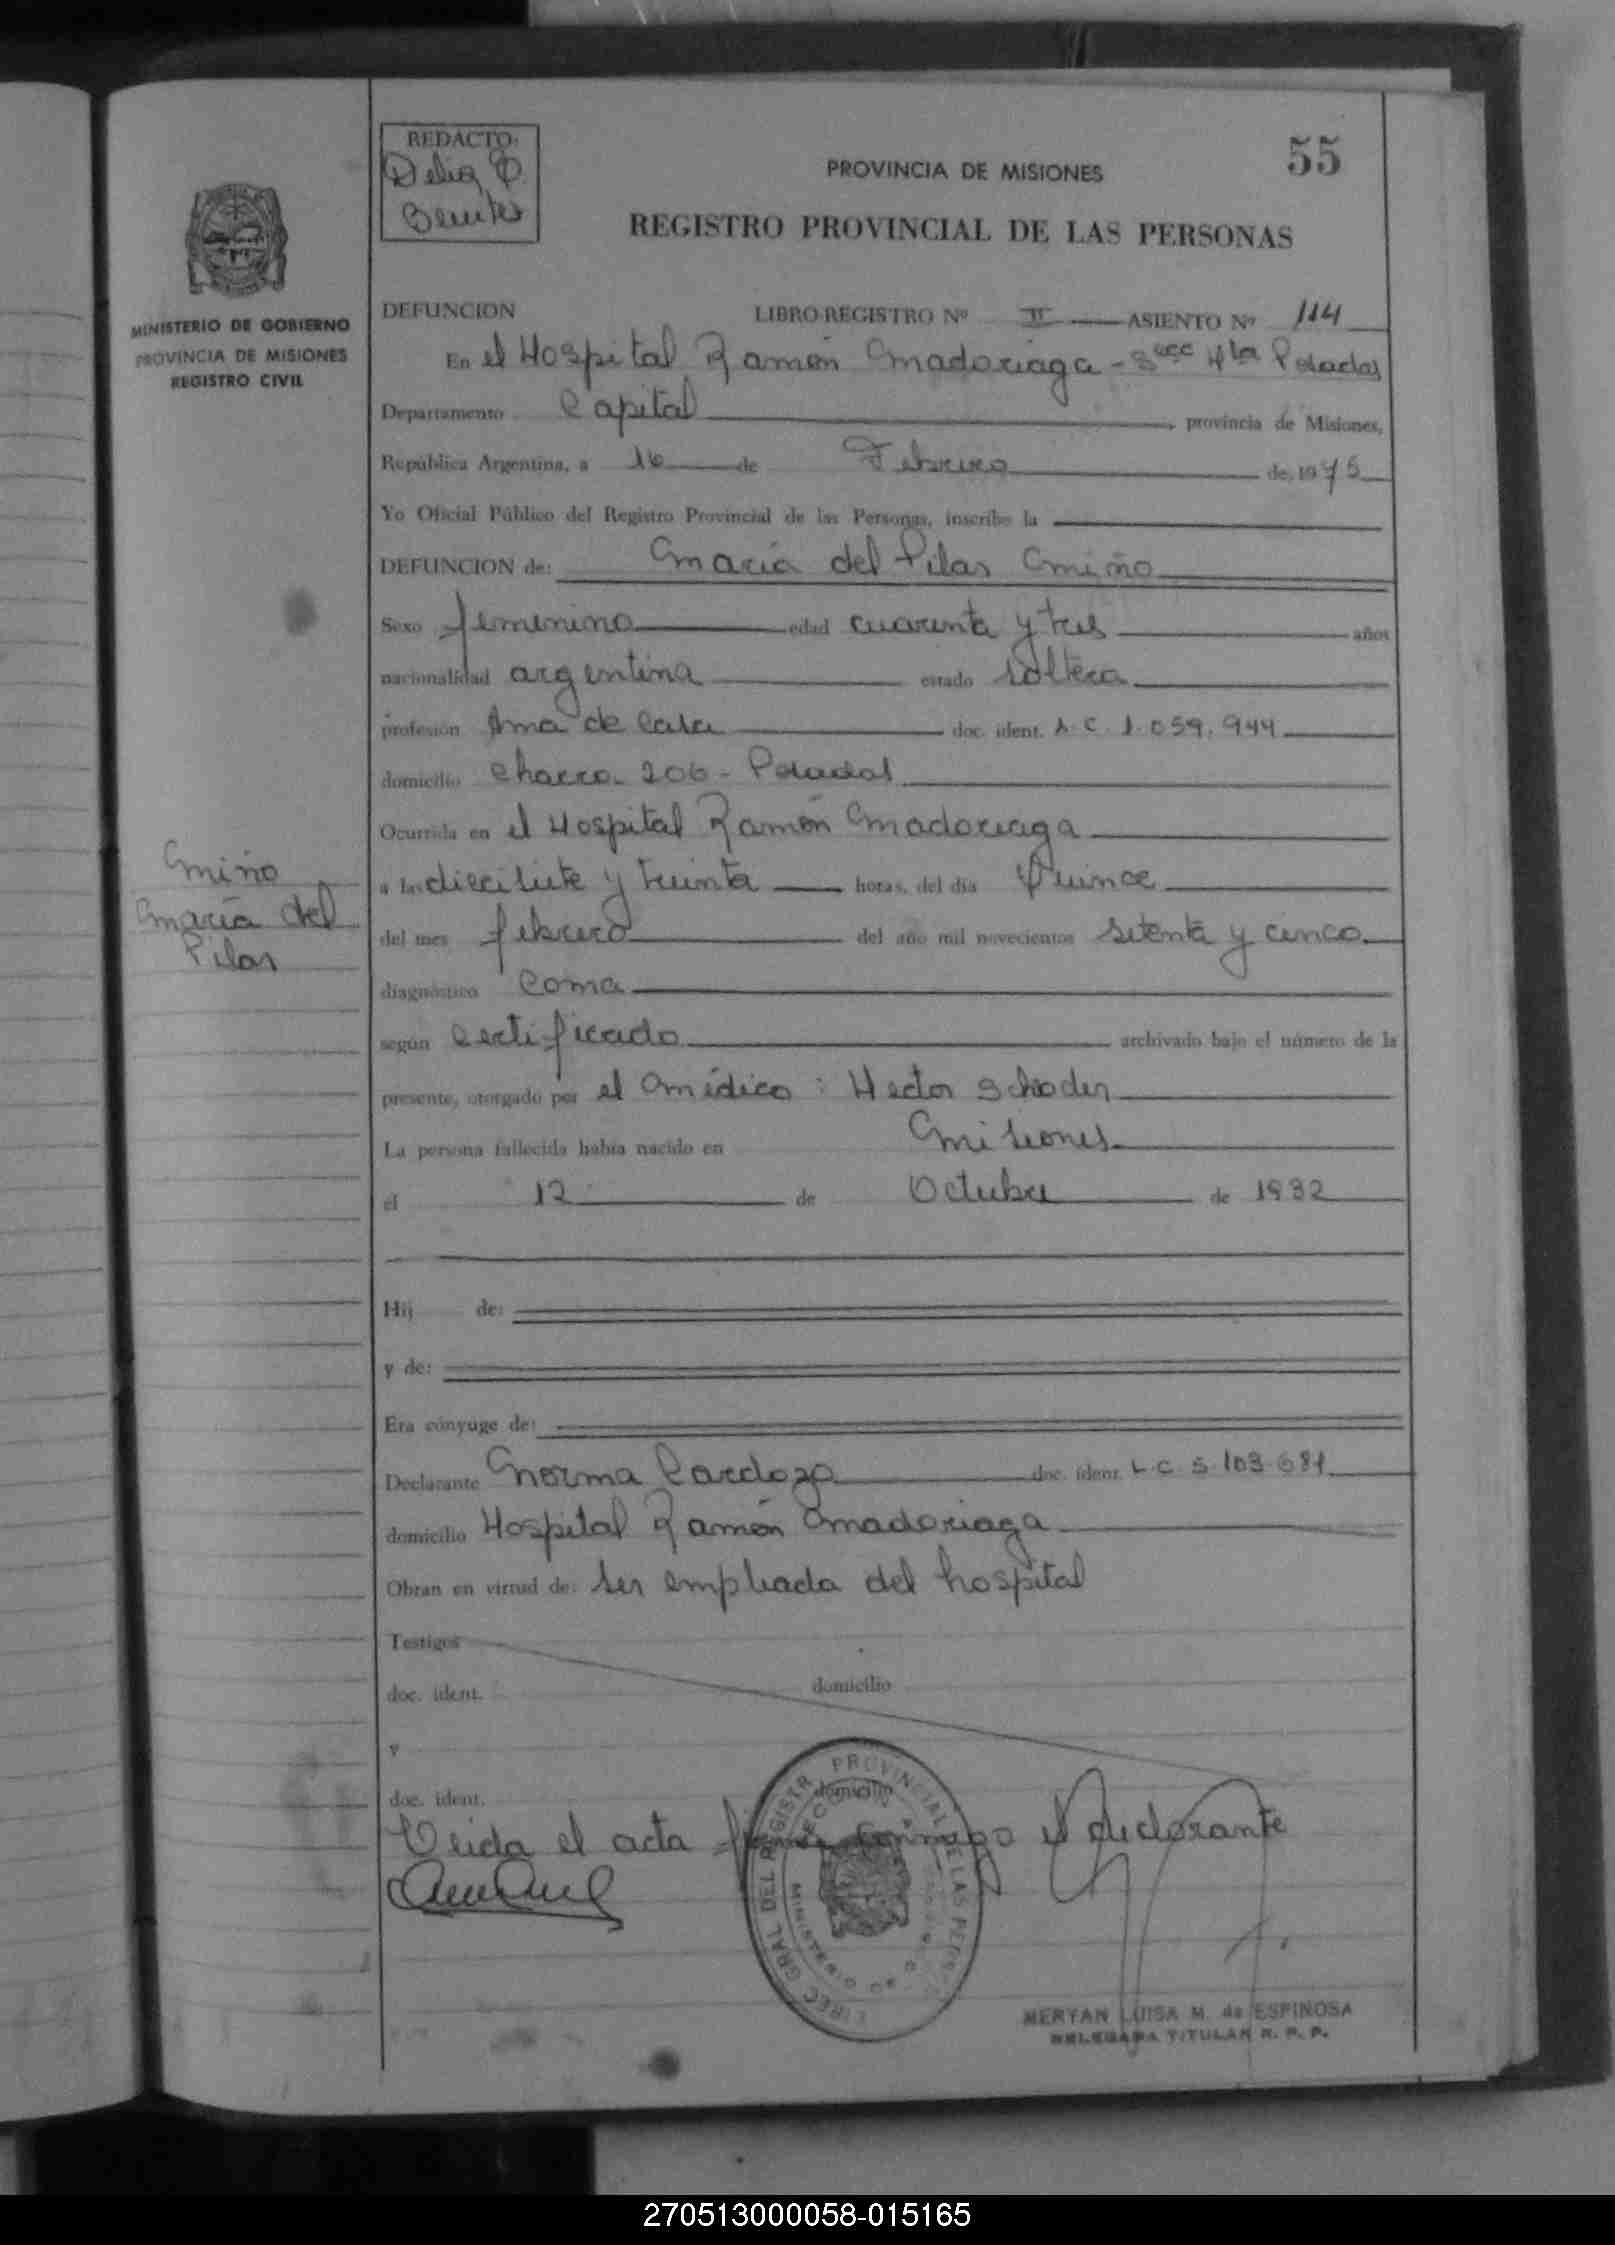 55
REDACTO:
Delia E.
Benitez
PROVINCIA DE MISIONES
REGISTRO PROVINCIAL DE LAS PERSONAS
MINISTERIO DE GOBIERNO
PROVINCIA DE MISIONES
REGISTRO CIVIL
DEFUNCION LIBRO-REGISTRO Nº II ASIENTO Nº 114
En el Hospital Ramón Madariaga - Secc 4ta Posadas
Departamento Capital, provincia de Misiones,
República Argentina, a 16 de Febrero de 1975
Yo Oficial Público del Registro Provincial de las Personas, inscribo la
DEFUNCION de: María del Pilar Miño
Sexo femenino edad cuarenta y tres años
nacionalidad argentina estado soltera
profesión Ama de Casa doc. ident. L.C. 1.059.944
domicilio Chacra 206 - Posadas
Ocurrida en el Hospital Ramón Madariaga
a las diecisiete y treinta horas, del día Quince
del mes febrero del año mil novecientos setenta y cinco
diagnóstico Coma
según Certificado archivado bajo el número de la
presente, otorgado por el médico: Hector
La persona fallecida había nacido en Misiones
el 12 de Octubre de 1932
Hij de:
y de:
Era cónyuge de:
Declarante Norma Cardozo doc. ident. L.C. 5.103.681
domicilio Hospital Ramón Madariaga
Obran en virtud de: ser empleada del hospital
Testigos
doc. ident. domicilio
y
doc. ident. domicilio
Leida el acta firma conmigo el declarante
Miño
María del
Pilar
DIREC. GRAL DEL REGISTR. PROVINCIAL DE LAS PERSONAS
MINISTERIO DE GO
MERYAN LUISA M. de ESPINOSA
DELEGADA TITULAR R. P. P.
270513000058-015165